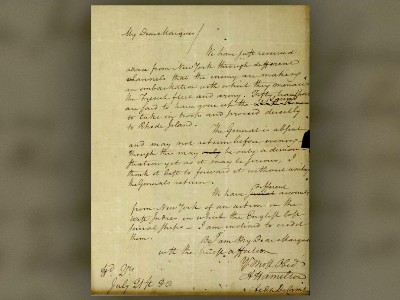 My Dear Marquis /
We have just received
advice from New York through different
channels that the enemy are making
an embarkation with which they menace
the French fleet and army. Fifty transports
are said to have gone up the
to take in troops and proceed directly
to Rhode Island.
The General is absent
and may not return before evening
though this may be only a demon-
stration yet as it may be serious, I
think it best to forward it without waiting
the Generals return.
We have different accounts
from New York of an action in the
West Indies in which the English lost
several ships - I am inclined to credit
them.
I am My Dear Marquis
with the truest affection
Yr. Most Obed
A Hamilton
Aide De Camp
Hd. Qrs.
July 21st 80